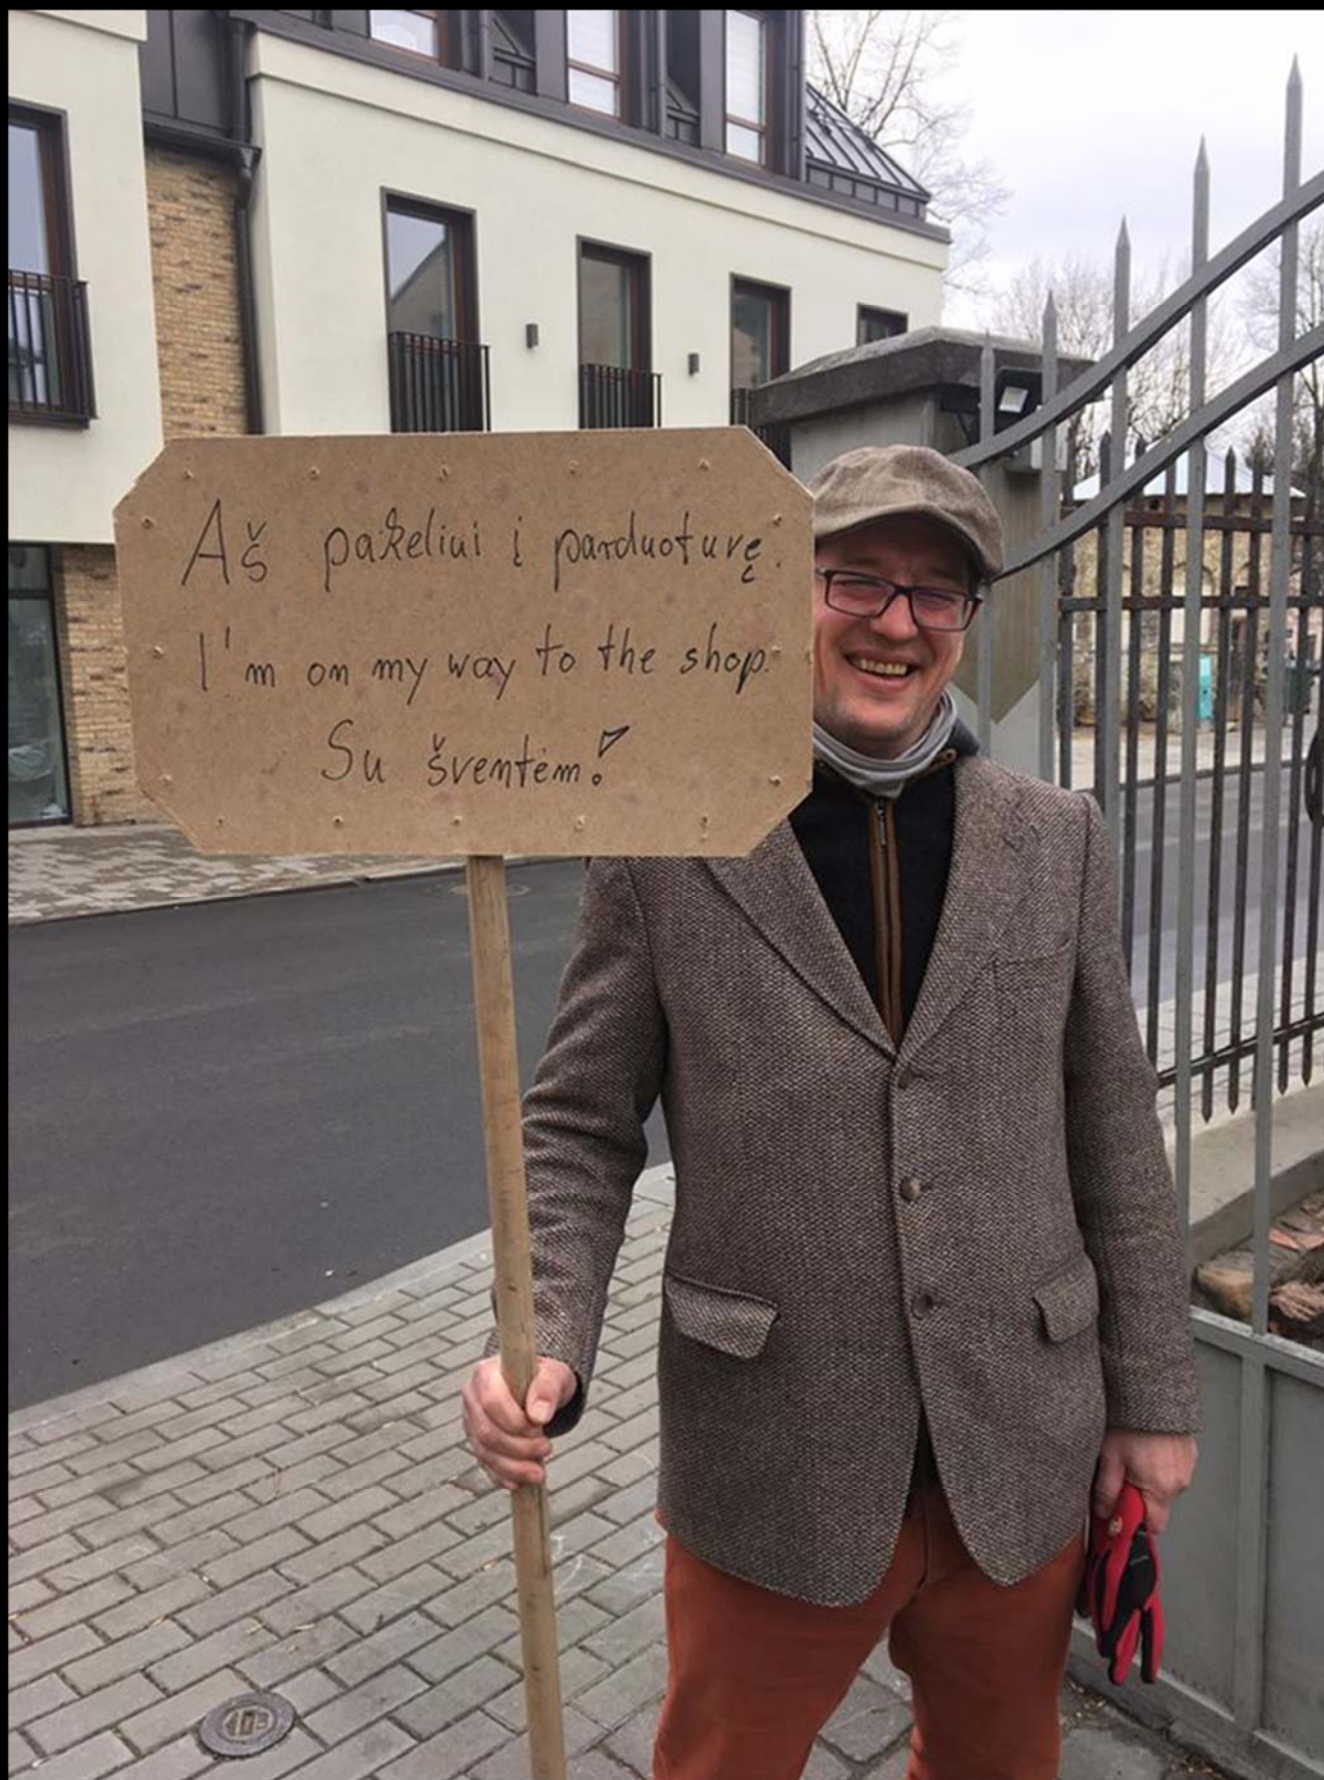 Aš pakeliui į parduotuvę.
I'm on my way to the shop.
Su šventėm!